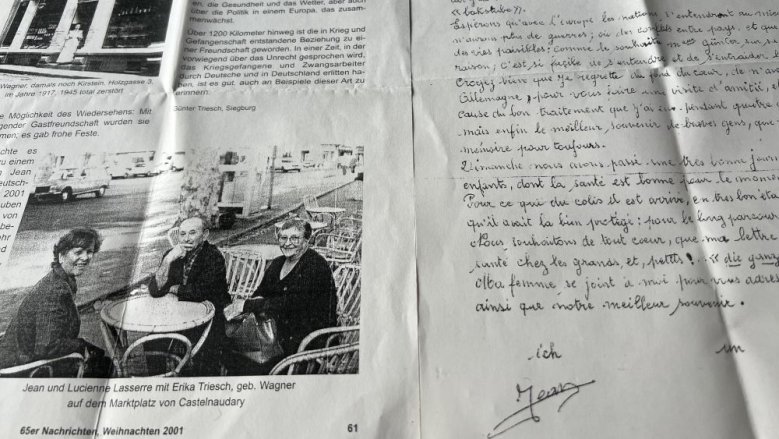 en, die Gesundheit und das Wetter, aber auch
über die Politik in einem Europa, das zusam-
menwächst.
Über 1200 Kilometer hinweg ist die im Krieg und
Gefangenschaft entstandene Beziehung zu ei-
er Freundschaft geworden. In einer Zeit, in der
vorwiegend über das Unrecht gesprochen wird,
das Kriegsgefangene und Zwangsarbeiter
durch Deutsche und in Deutschland erlitten ha-
ben, ist es gut, auch an Beispiele dieser Art zu
erinnern.
Günter Triesch, Siegburg
Wagner, damals noch Kirstein, Holzgasse 3,
im Jahre 1917, 1945 total zerstört
e Möglichkeit des Wiedersehens: Mit
gender Gastfreundschaft wurden sie
men; es gab frohe Feste.
chte es
zu einem
Jean
eutsch-
2001
uben
von
be-
ahr
Jean und Lucienne Lasserre mit Erika Triesch, geb. Wagner
auf dem Marktplatz von Castelnaudary
65er Nachrichten, Weihnachten 2001
61
Espérons qu'avec l'europe les nations, s'entendront au mieux
plus de guerres; ou, des conflits entre pays, et que
des vies paisibles: comme le souhaite
raison, c'est si facile de s'entendre et de s'entraider
Croyez bien que je regrette du fond du cœur, de n'a
Allemagne, pour vous faire une visite d'amitié, et
cause du bon traitement que j'ai eu pendant quatre
mais enfin le meilleur souvenir de braves gens, que
mémoire pour toujours.
Dimanche nous avons passé une très bonne jour
enfants, dont la santé est bonne pour le moment
Pour ce qui du colis il est arrivé, en très bon éta
qu'il avait la bien protégé: pour le long parcours
Nous souhaitons de tout cœur, que ma lettre
santé chez les grands, et, petits! « die ganz
Ma femme se joint à moi pour vous adres
ainsi que notre meilleur souvenir.
ich
Jean